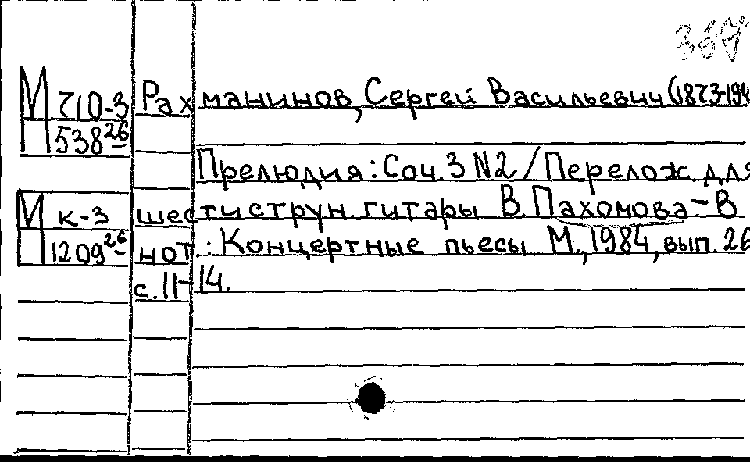 367
М 710-3 Рахманинов, Сергей Васильевич (1873-194
П 538 26
Прелюдия: Соч. 3 N2 / Перелож. для
М к-3 шестиструн. гитары В. Пахомова - В
П 1209 26 нот.: Концертные пьесы М., 1984, вып. 26
с. 11-14.